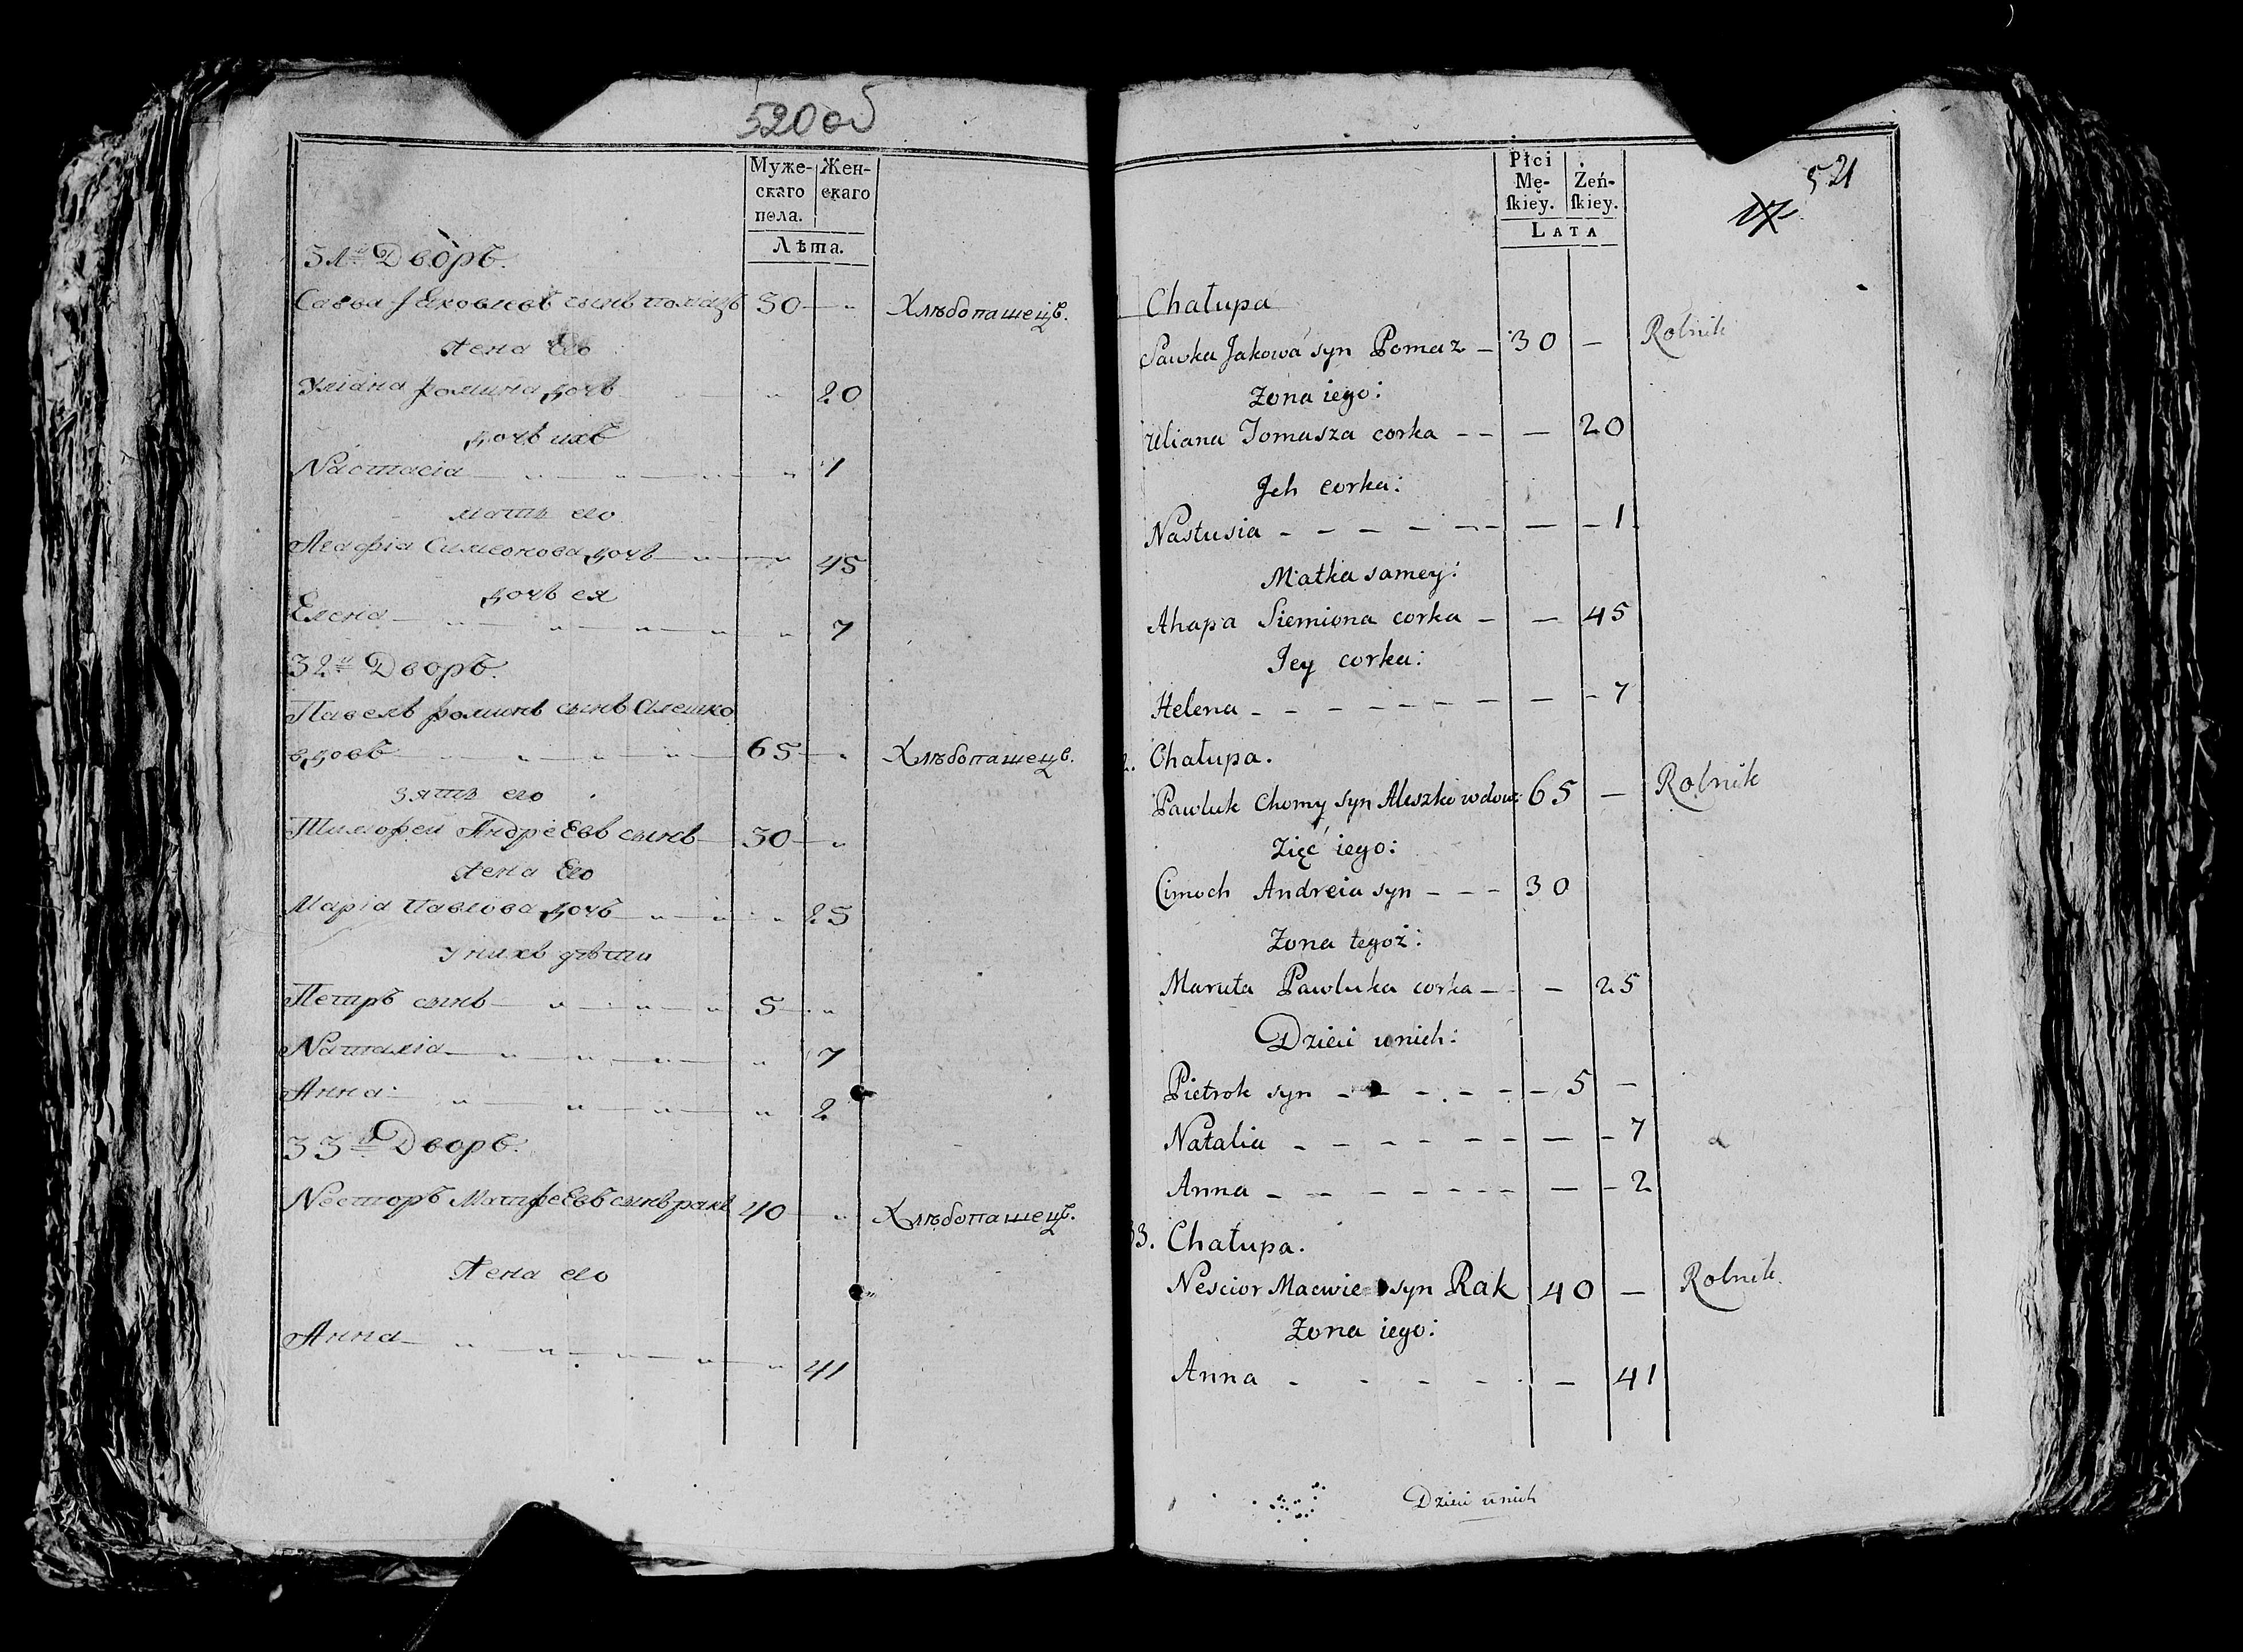 520 об
Муже-
скаго
пола.
Жен-
скаго
Лѣта.
31й Дворъ.
Савва Яковлевъ сынъ помазъ 30 Хлѣбопашецъ.
Жена Его
Улiана Фомина дочь 20
дочь ихъ
Настасiа 1
мать его
Агафiа Симеонова дочь 45
дочь ея
Елена 7
32й Дворъ.
Павелъ Фоминъ сынъ Алешко
вдовъ 65 Хлѣбопашецъ.
зять его
Тимофей Андрiевъ сынъ 30
Жена Его
Марiа Павлова дочь 25
у нихъ дѣти
Петръ сынъ 5
Наталiа 7
Анна 2
33й Дворъ.
Несторъ Матфеевъ сынъ ракъ 40 Хлѣбопашецъ.
Жена его
Анна 41
521
17
Płci
Mę-
skiey.
Żeń-
skiey.
LATA
Chałupa
Sawka Jakowa syn Pomaz - 30 - Rolnik
Żona iego:
Uliana Tomasza corka - - - 20
Jch corka:
Nastusia - - - - - - - 1
Matka samey:
Ahapa Siemiona corka - - 45
Jey corka:
Helena - - - - - - - - 7
2. Chałupa.
Pawluk Chomy syn Aleszko wdow: 65 - Rolnik
Zięć iego:
Cimoch Andreia syn - - - 30
Żona tegoż:
Maruta Pawluka corka - - 25
Dzieci u nich:
Pietrok syn - - - - - 5 -
Natalia - - - - - - - 7
Anna - - - - - - - - 2
33. Chałupa.
Nescior Macwie syn Rak 40 - Rolnik.
Żona iego:
Anna - - - - - 41
Dzieci u nich